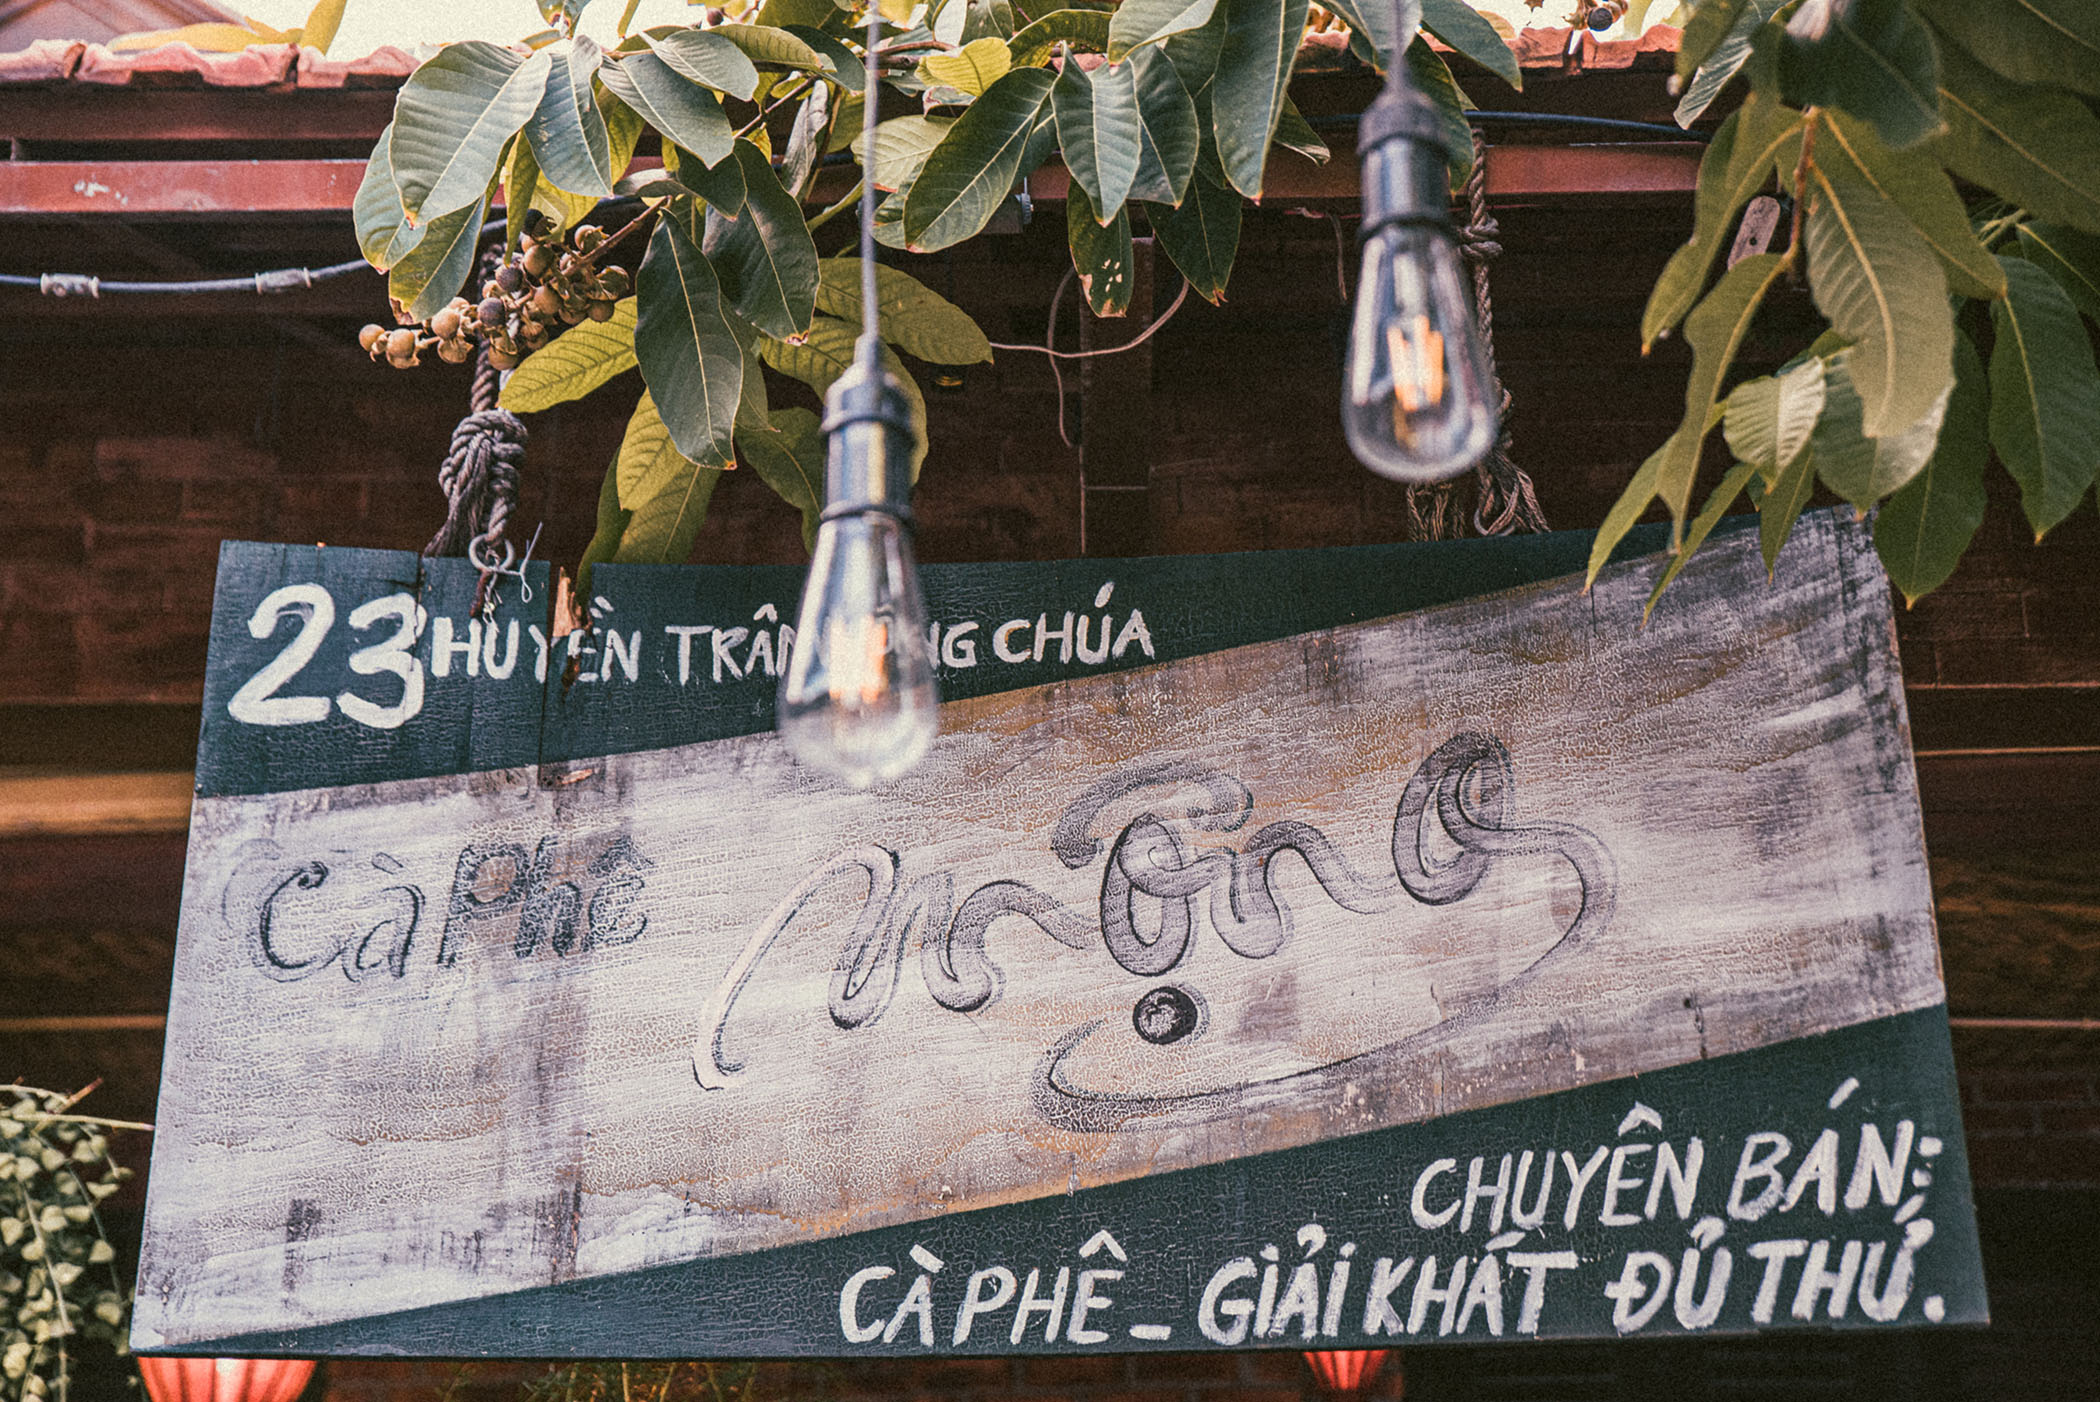 23 HUYỀN TRÂN CÔNG CHÚA
Cà Phê Mộng
CHUYÊN BÁN:
CÀ PHÊ - GIẢI KHÁT ĐỦ THỨ.